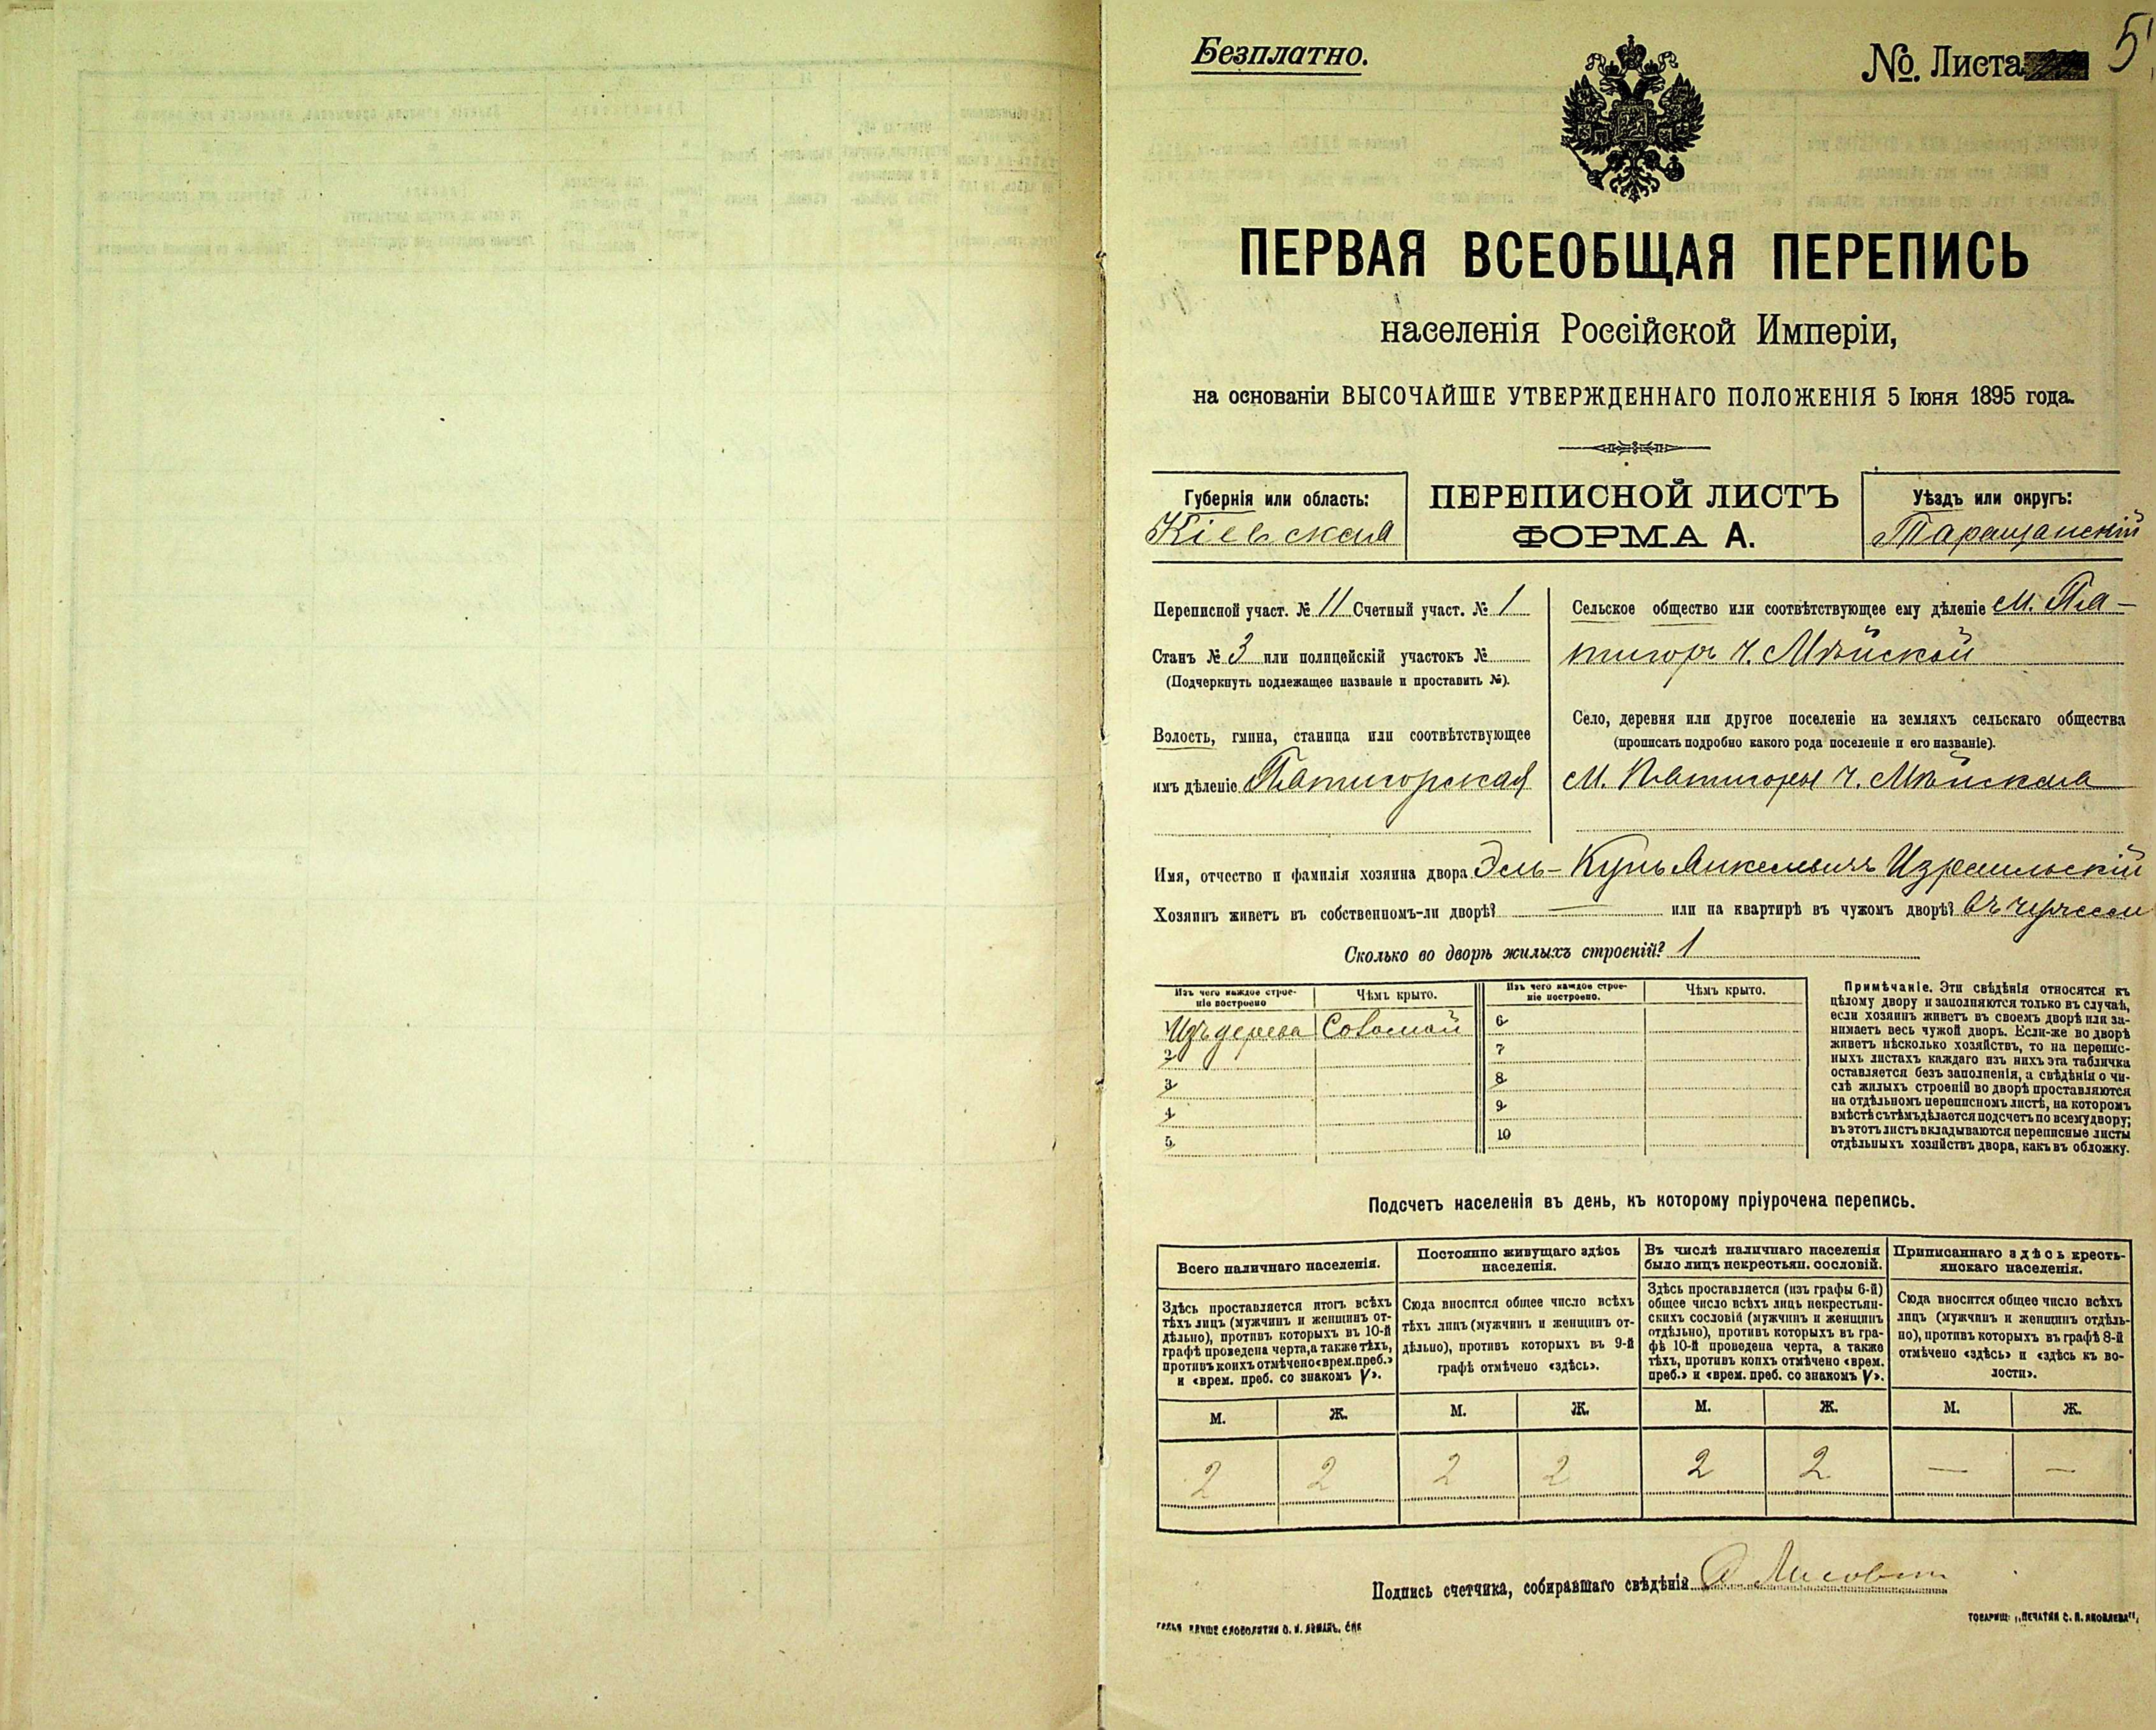 Безплатно.
№. Листа 5
ПЕРВАЯ ВСЕОБЩАЯ ПЕРЕПИСЬ
населенія Россійской Имперіи,
на основаніи ВЫСОЧАЙШЕ УТВЕРЖДЕННАГО ПОЛОЖЕНІЯ 5 Іюня 1895 года.
Губернія или область:
Кіевская
ПЕРЕПИСНОЙ ЛИСТЪ
ФОРМА А.
Уѣздъ или округъ:
Таращанскій
Переписной участ. № 11 Счетный участ. № 1
Станъ № 3 или полицейскій участокъ №
(Подчеркнуть подлежащее названіе и проставить №).
Волость, гмина, станица или соотвѣтствующее
имъ дѣленіе Пятигорская
Сельское общество или соотвѣтствующее ему дѣленіе м. Пя-
тигоръ ч.
Село, деревня или другое поселеніе на земляхъ сельскаго общества
(прописать подробно какого рода поселеніе и его названіе).
М. Пятигоры ч.
Имя, отчество и фамилія хозяина двора Эль- Янкелевичъ Израильскій
Хозяинъ живетъ въ собственномъ-ли дворѣ? — или на квартирѣ въ чужомъ дворѣ? въ чужомъ
Сколько во дворѣ жилыхъ строеній? 1
Изъ чего каждое строе-
ніе построено
Чѣмъ крыто.
Изъ чего каждое строе-
ніе построено.
Чѣмъ крыто.
Изъ дерева Соломой
2
3
4
5.
6
7
8
9
10
Примѣчаніе. Эти свѣдѣнія относятся къ
цѣлому двору и заполняются только въ случаѣ,
если хозяинъ живетъ въ своемъ дворѣ или за-
нимаетъ весь чужой дворъ. Если-же во дворѣ
живетъ нѣсколько хозяйствъ, то на перепис-
ныхъ листахъ каждаго изъ нихъ эта табличка
оставляется безъ заполненія, а свѣдѣнія о чи-
слѣ жилыхъ строеній во дворѣ проставляются
на отдѣльномъ переписномъ листѣ, на которомъ
вмѣстѣ съ тѣмъ дѣлается подсчетъ по всему двору;
въ этотъ листъ вкладываются переписные листы
отдѣльныхъ хозяйствъ двора, какъ въ обложку.
Подсчетъ населенія въ день, къ которому пріурочена перепись.
Всего наличнаго населенія.
Здѣсь проставляется итогъ всѣхъ
тѣхъ лицъ (мужчинъ и женщинъ от-
дѣльно), противъ которыхъ въ 10-й
графѣ проведена черта, а также тѣхъ,
противъ коихъ отмѣчено «врем. преб.»
и «врем. преб. со знакомъ V».
Постоянно живущаго здѣсь
населенія.
Сюда вносится общее число всѣхъ
тѣхъ лицъ (мужчинъ и женщинъ от-
дѣльно), противъ которыхъ въ 9-й
графѣ отмѣчено «здѣсь».
Въ числѣ наличнаго населенія
было лицъ некрестьян. сословій.
Здѣсь проставляется (изъ графы 6-й)
общее число всѣхъ лицъ некрестьян-
скихъ сословій (мужчинъ и женщинъ
отдѣльно), противъ которыхъ въ гра-
фѣ 10-й проведена черта, а также
тѣхъ, противъ коихъ отмѣчено «врем.
преб.» и «врем. преб. со знакомъ V».
Приписаннаго здѣсь кресть-
янскаго населенія.
Сюда вносится общее число всѣхъ
лицъ (мужчинъ и женщинъ отдѣль-
но), противъ которыхъ въ графѣ 8-й
отмѣчено «здѣсь» и «здѣсь къ во-
лости».
М. Ж. М. Ж. М. Ж. М. Ж.
2 2 2 2 2 2 — —
Подпись счетчика, собиравшаго свѣдѣнія
ТОВАРИЩ. „ПЕЧАТНЯ С. П. ЯКОВЛЕВА“